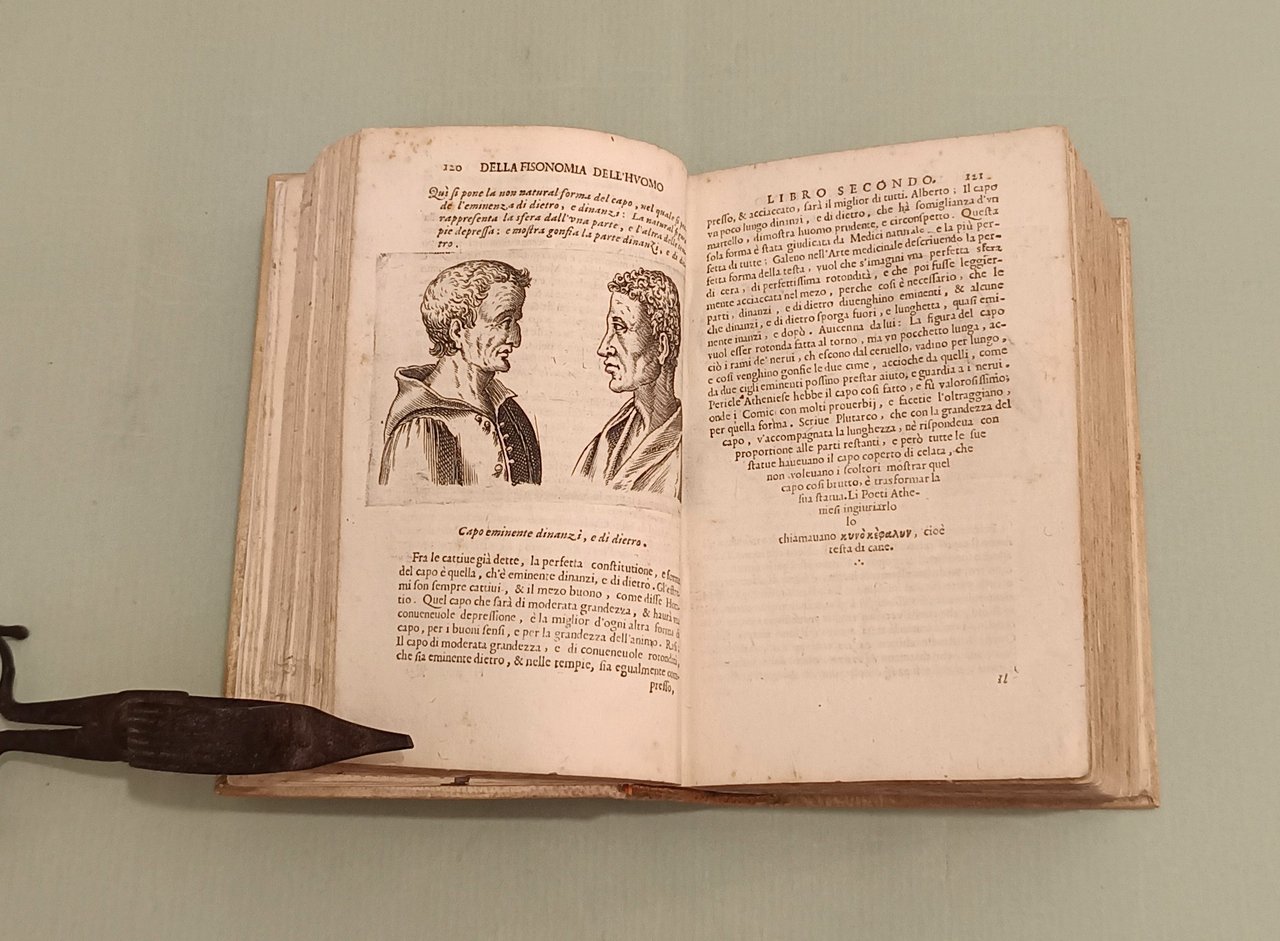 120 DELLA FISONOMIA DELL'HVOMO
Quì si pone la non natural forma del capo, nel quale si
de l'eminenza di dietro, e dinanzi: La natural
rappresenta la sfera dall'vna parte, e l'altra
pie depressa: e mostra gonfia la parte dinanzi, e di
tro.
Capo eminente dinanzi, e di dietro.
Fra le cattiue già dette, la perfetta constitutione, e forma
del capo è quella, ch'è eminente dinanzi, e di dietro. Gl'estre-
mi son sempre cattiui, & il mezo buono, come disse Hora-
tio. Quel capo che sarà di moderata grandezza, & haurà vna
conueneuole depressione, è la miglior d'ogni altra forma di
capo, per i buoni sensi, e per la grandezza dell'animo. Rasi:
Il capo di moderata grandezza, e di conueneuole rotondità,
che sia eminente dietro, & nelle tempie, sia egualmente com-
presso,
LIBRO SECONDO. 121
presso, & acciaccato, sarà il miglior di tutti. Alberto; Il capo
vn poco lungo dinãzi, e di dietro, che hà somiglianza d'vn
martello, dimostra huomo prudente, e circonspetto. Questa
sola forma è stata giudicata da Medici naturale e la più per-
fetta di tutte: Galeno nell'Arte medicinale descriuendo la per-
fetta forma della testa, vuol che s'imagini vna perfetta sfera
di cera, di perfettissima rotondità, e che poi fusse leggier-
mente acciaccata nel mezo, perche così è necessario, che le
parti, dinanzi, e di dietro diuenghino eminenti, & alcune
che dinanzi, e di dietro sporga fuori, e lunghetta, quasi emi-
nente inanzi, e dopò. Auicenna da lui: La figura del capo
vuol esser rotonda fatta al torno, ma vn pocchetto lunga, ac-
ciò i rami de' nerui, ch escono dal ceruello, vadino per lungo,
e così venghino gonfie le due cime, accioche da quelli, come
da due cigli eminenti possino prestar aiuto, e guardia a i nerui.
Pericle Atheniese hebbe il capo così fatto, e fù valorosissimo;
onde i Comic con molti prouerbij, e facetie l'oltraggiano,
per quella forma. Scriue Plutarco, che con la grandezza del
capo, v'accompagnata la lunghezza, nè rispondeua con
proportione alle parti restanti, e però tutte le sue
statue haueuano il capo coperto di celata, che
non voleuano i scoltori mostrar quel
capo così brutto, è trasformar la
sua statua. Li Poeti Athe-
niesi ingiuriarlo
lo
chiamauano κυνὸκέφαλυν, cioè
testa di cane.
Il